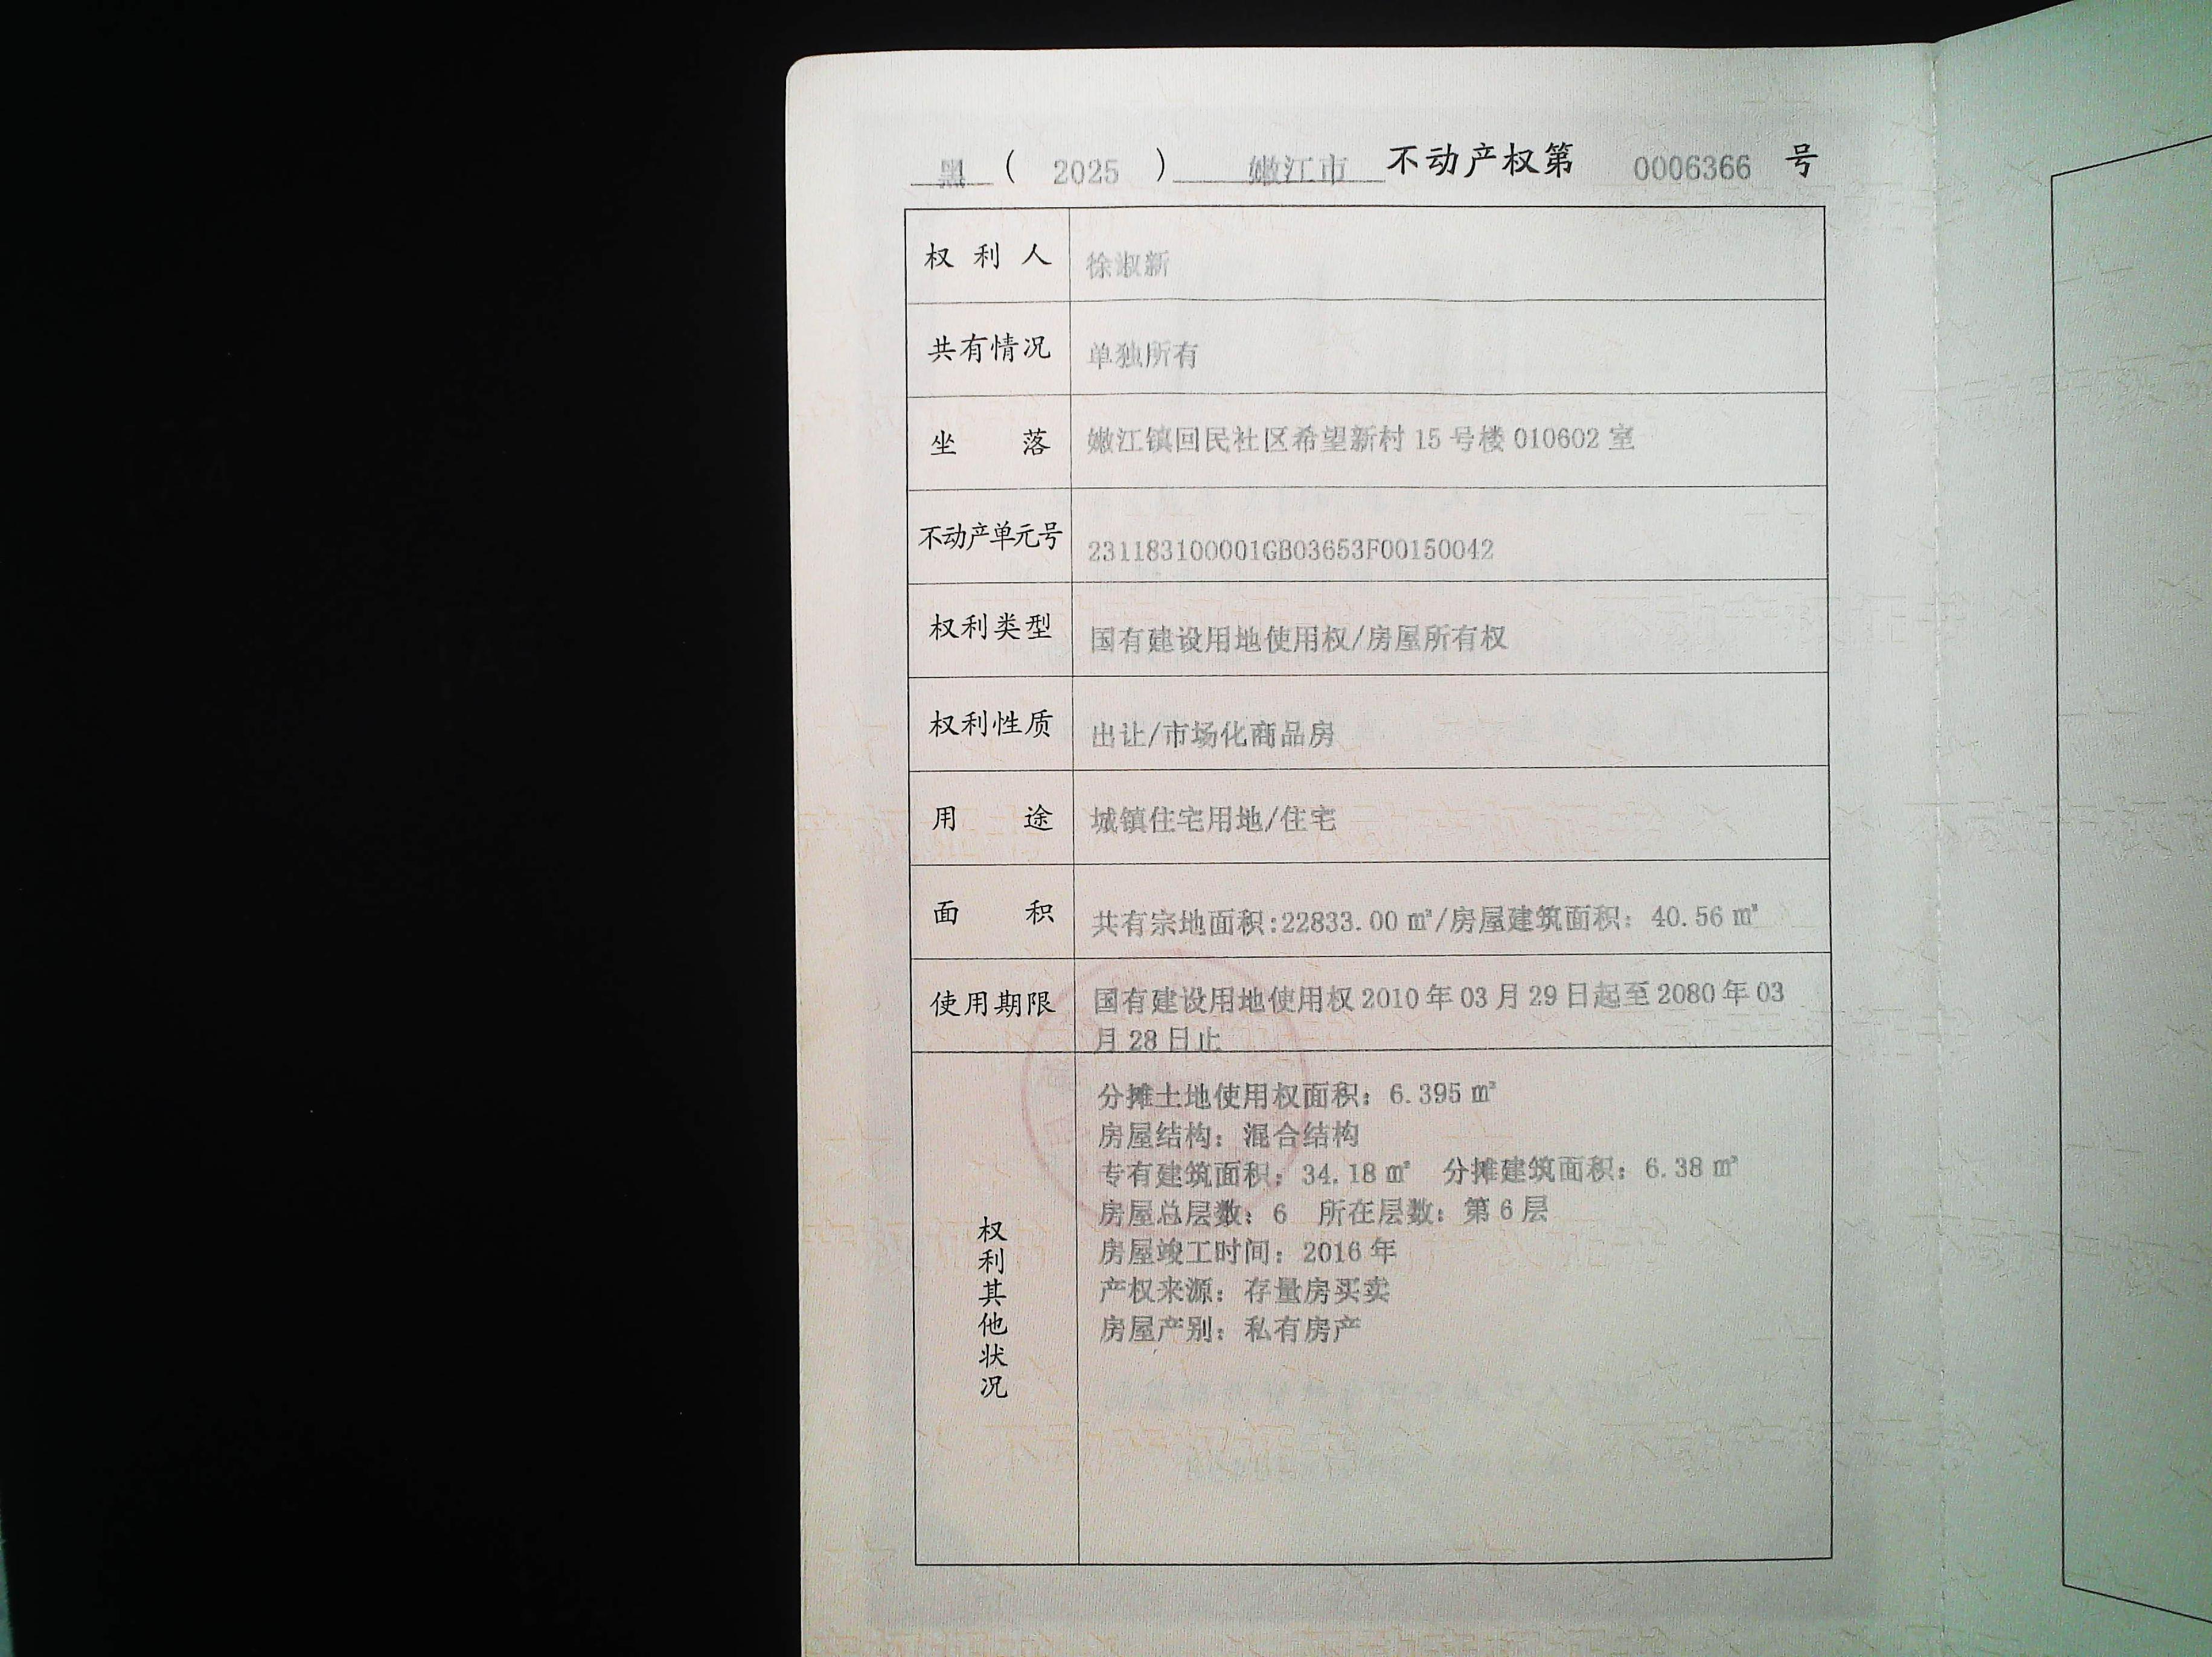 黑 ( 2025 ) 嫩江市 不动产权第 0006366 号
权利人 徐淑新
共有情况 单独所有
坐落 嫩江镇回民社区希望新村 15 号楼 010602 室
不动产单元号 231183100001GB03653F00150042
权利类型 国有建设用地使用权/房屋所有权
权利性质 出让/市场化商品房
用途 城镇住宅用地/住宅
面积 共有宗地面积:22833.00 ㎡/房屋建筑面积: 40.56 ㎡
使用期限 国有建设用地使用权 2010 年 03 月 29 日起至 2080 年 03
月 28 日止
权利其他状况
分摊土地使用权面积: 6.395 ㎡
房屋结构: 混合结构
专有建筑面积: 34.18 ㎡ 分摊建筑面积: 6.38 ㎡
房屋总层数: 6 所在层数: 第 6 层
房屋竣工时间: 2016 年
产权来源: 存量房买卖
房屋产别: 私有房产